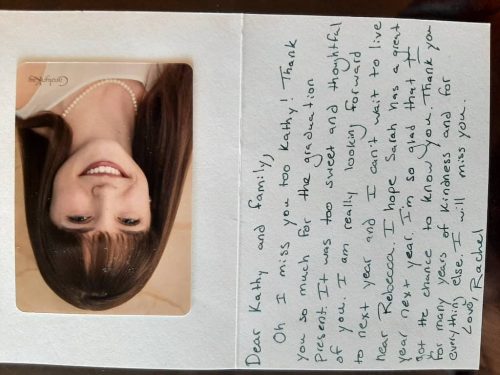 Dear Kathy and family,
Oh I miss you too Kathy! Thank
you so much for the graduation
present. It was too sweet and thoughtful
of you. I am really looking forward
to next year and I can't wait to live
near Rebecca. I hope Sarah has a great
year next year. I'm so glad that I
got the chance to know you. Thank you
for many years of kindness and for
everything else. I will miss you.
Love, Rachel